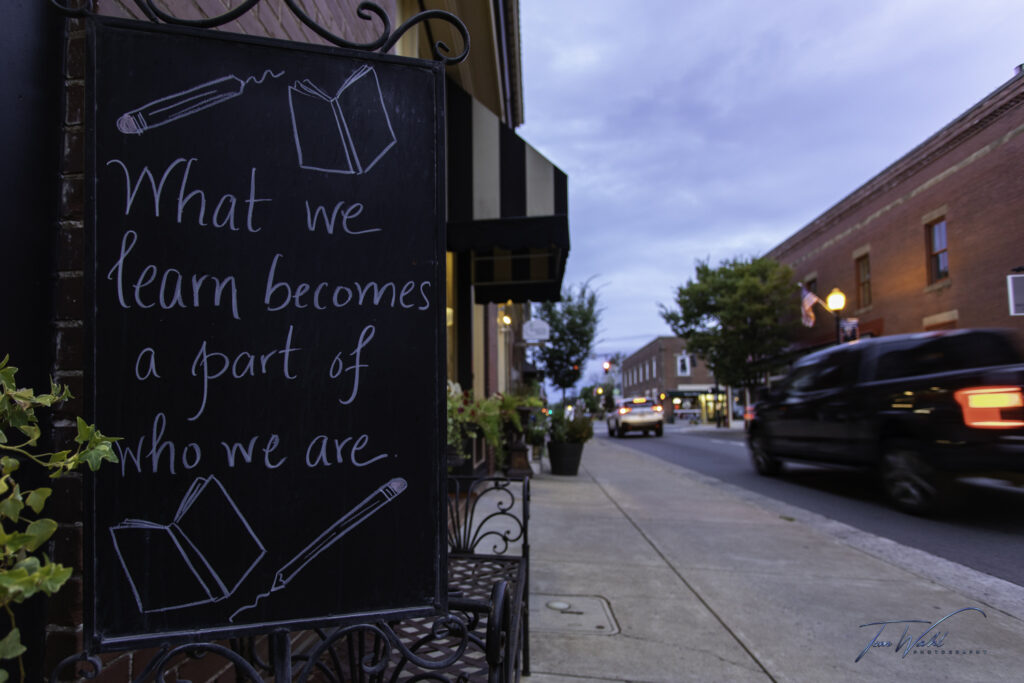 What we
learn becomes
a part of
who we are.
PHOTOGRAPHY